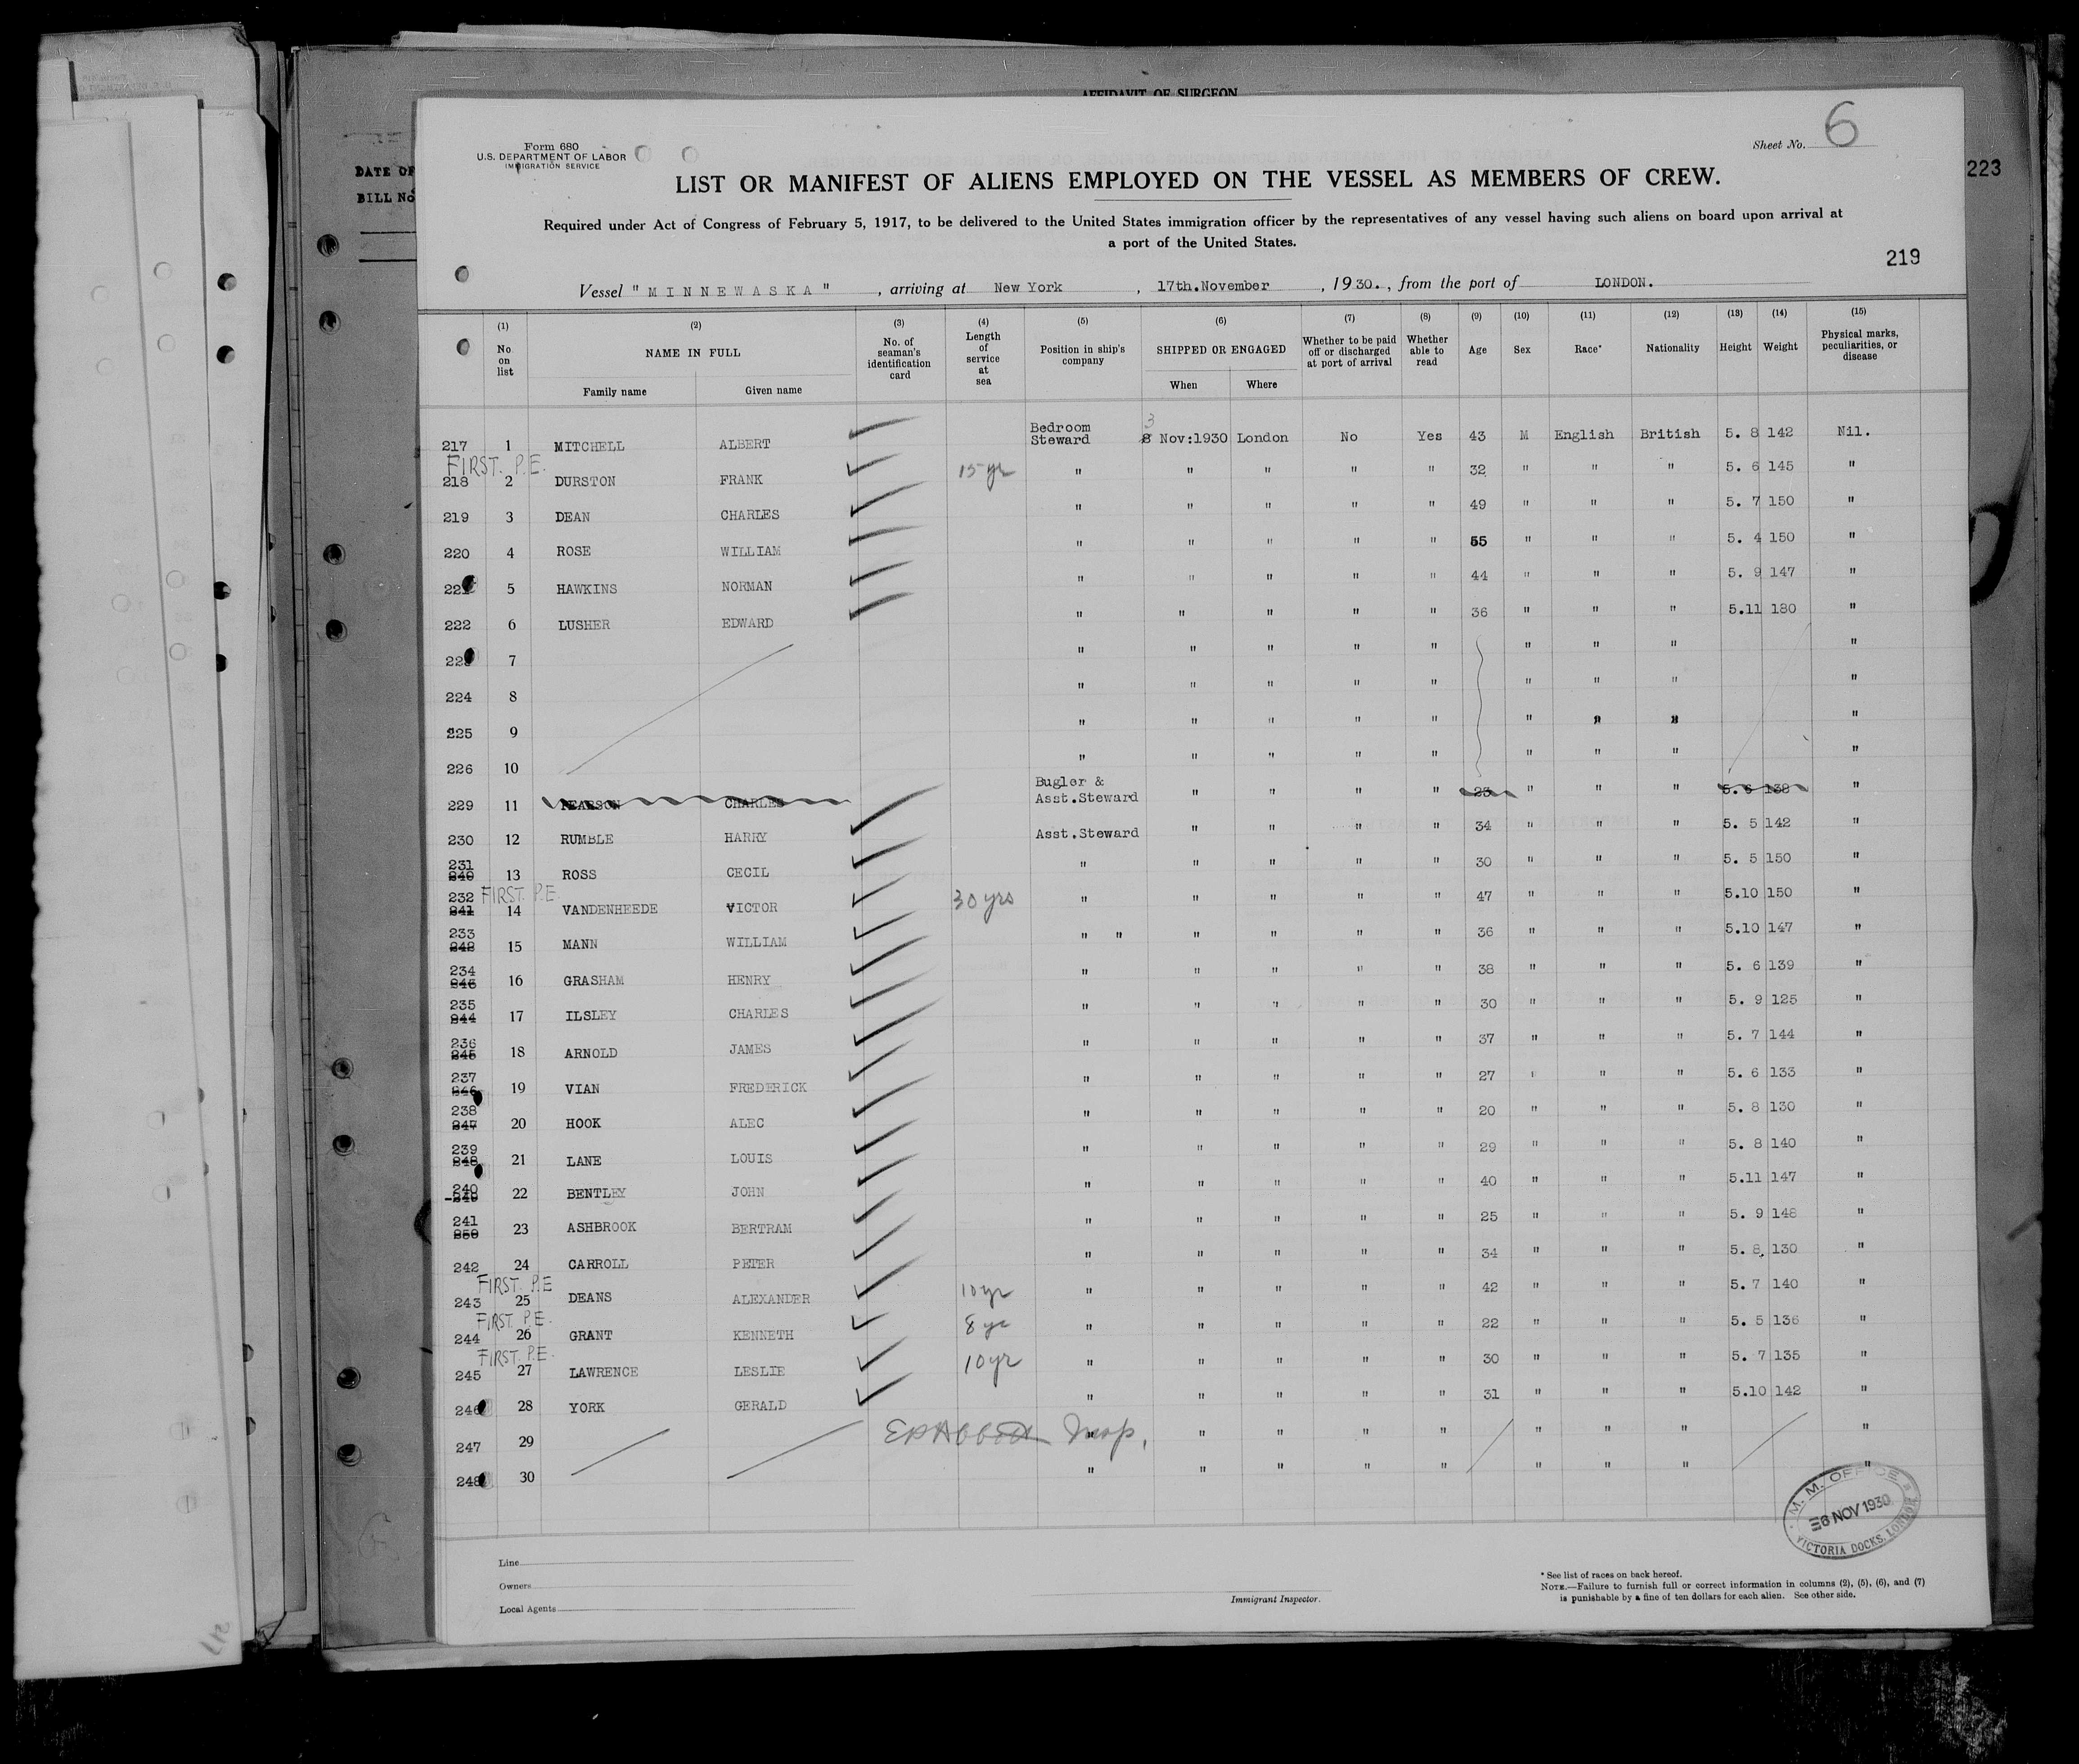 AFFIDAVIT OF SURGEON
DATE OF
BILL No
223
Form 680
U.S. DEPARTMENT OF LABOR
IMMIGRATION SERVICE
Sheet No. 6
LIST OR MANIFEST OF ALIENS EMPLOYED ON THE VESSEL AS MEMBERS OF CREW.
Required under Act of Congress of February 5, 1917, to be delivered to the United States immigration officer by the representatives of any vessel having such aliens on board upon arrival at
a port of the United States.
219
Vessel "MINNEWASKA", arriving at New York, 17th.November, 1930., from the port of LONDON.
(1) No. on list (2) NAME IN FULL Family name Given name (3) No. of seaman's identification card (4) Length of service at sea (5) Position in ship's company (6) SHIPPED OR ENGAGED When Where (7) Whether to be paid off or discharged at port of arrival (8) Whether able to read (9) Age (10) Sex (11) Race* (12) Nationality (13) Height (14) Weight (15) Physical marks, peculiarities, or disease
217 1 MITCHELL ALBERT Bedroom Steward 3 8 Nov:1930 London No Yes 43 M English British 5. 8 142 Nil.
FIRST. P.E.
218 2 DURSTON FRANK 15 yr " " " " " 32 " " " 5. 6 145 "
219 3 DEAN CHARLES " " " " " 49 " " " 5. 7 150 "
220 4 ROSE WILLIAM " " " " " 55 " " " 5. 4 150 "
221 5 HAWKINS NORMAN " " " " " 44 " " " 5. 9 147 "
222 6 LUSHER EDWARD " " " " " 36 " " " 5.11 180 "
223 7 " " " " " " " " "
224 8 " " " " " " " " "
225 9 " " " " " " " " "
226 10 " " " " " " " " "
229 11 PEARSON CHARLES Bugler & Asst.Steward " " " " 23 " " " 5. 6 138 "
230 12 RUMBLE HARRY Asst.Steward " " " " 34 " " " 5. 5 142 "
231 240 13 ROSS CECIL " " " " " 30 " " " 5. 5 150 "
FIRST. P.E
232 241 14 VANDENHEEDE VICTOR 30 yrs " " " " " 47 " " " 5.10 150 "
233 242 15 MANN WILLIAM " " " " " " 36 " " " 5.10 147 "
234 246 16 GRASHAM HENRY " " " " " 38 " " " 5. 6 139 "
235 244 17 ILSLEY CHARLES " " " " " 30 " " " 5. 9 125 "
236 245 18 ARNOLD JAMES " " " " " 37 " " " 5. 7 144 "
237 246 19 VIAN FREDERICK " " " " " 27 " " " 5. 6 133 "
238 247 20 HOOK ALEC " " " " " 20 " " " 5. 8 130 "
239 248 21 LANE LOUIS " " " " " 29 " " " 5. 8 140 "
240 249 22 BENTLEY JOHN " " " " " 40 " " " 5.11 147 "
241 250 23 ASHBROOK BERTRAM " " " " " 25 " " " 5. 9 148 "
242 24 CARROLL PETER " " " " " 34 " " " 5. 8. 130 "
FIRST. P.E
243 25 DEANS ALEXANDER 10 yr " " " " " 42 " " " 5. 7 140 "
FIRST. P.E.
244 26 GRANT KENNETH 8 yr " " " " " 22 " " " 5. 5 136 "
FIRST. P.E.
245 27 LAWRENCE LESLIE 10 yr " " " " " 30 " " " 5. 7 135 "
246 28 YORK GERALD " " " " " 31 " " " 5.10 142 "
247 29 Insp. " " " " " " " " "
248 30 " " " " " " " " "
M. M. OFFICE
6 NOV 1930
VICTORIA DOCKS, LONDON
Line
Owners
Local Agents
Immigrant Inspector.
* See list of races on back hereof.
NOTE.—Failure to furnish full or correct information in columns (2), (5), (6), and (7)
is punishable by a fine of ten dollars for each alien. See other side.